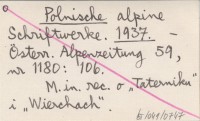 Polnische alpine
Schriftwerke. 1937. -
Österr. Alpenzeitung 59,
nr 1180: 106.
M. in. rec. o „Taterniku"
i „Wierchach".
b/1049/0747